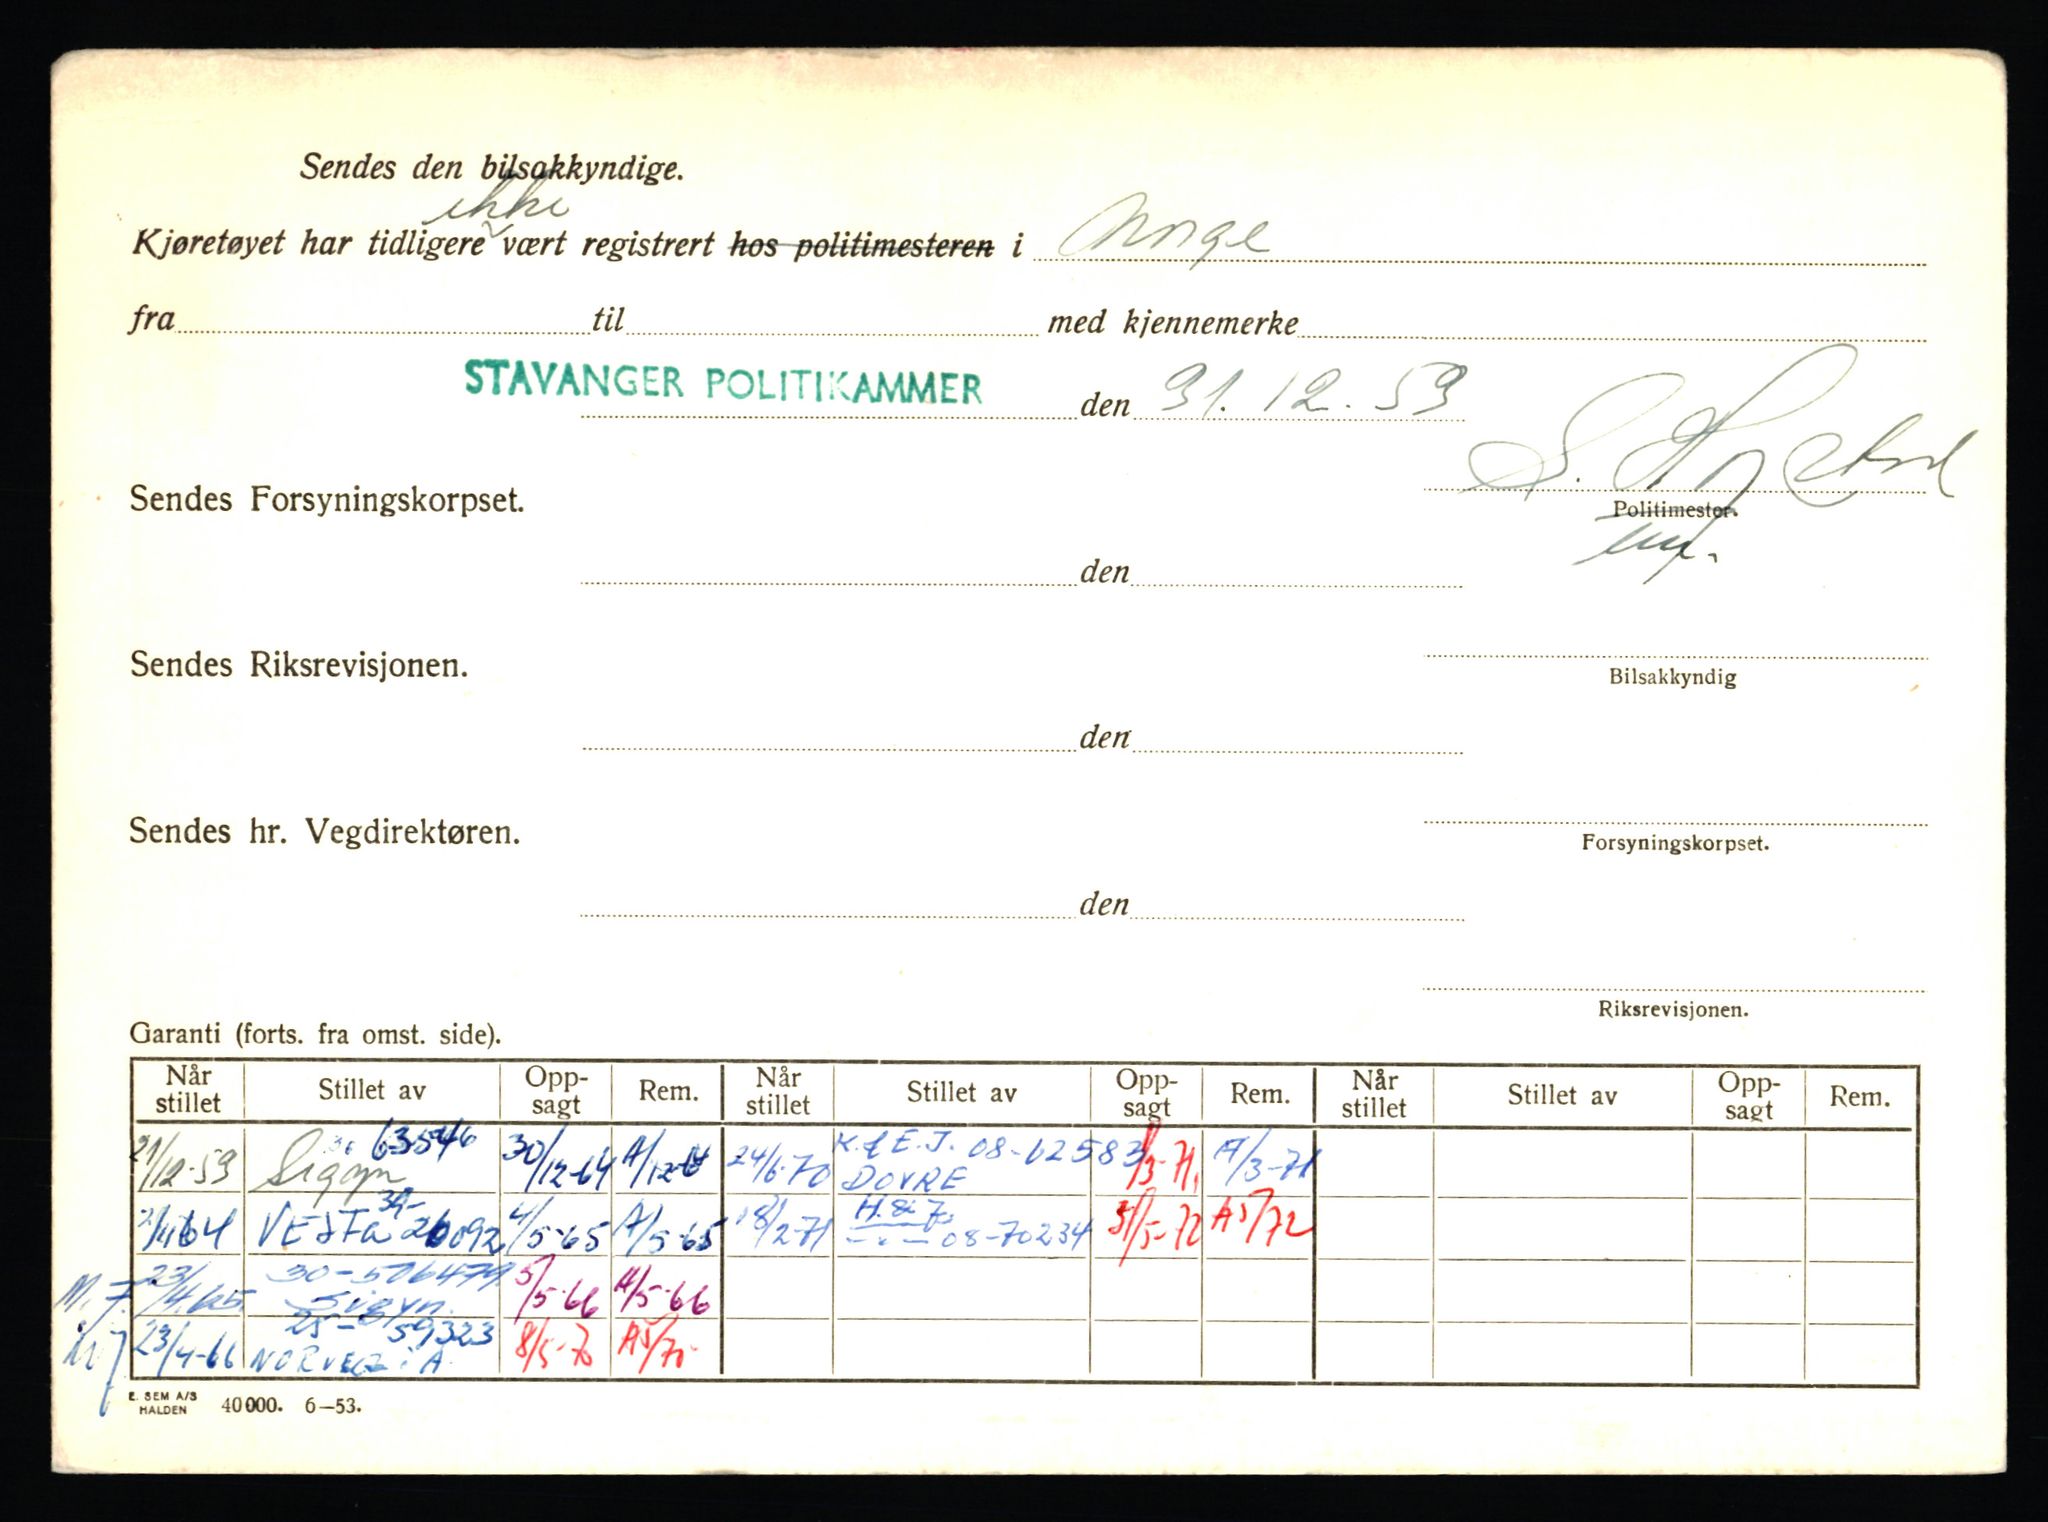 Sendes den bilsakkyndige.
ikke
Kjøretøyet har tidligere vært registrert hos politimesteren i Norge
fra til med kjennemerke
STAVANGER POLITIKAMMER den 31.12.53
Sendes Forsyningskorpset.
Politimester.
den
Sendes Riksrevisjonen.
Bilsakkyndig
den
Sendes hr. Vegdirektøren.
Forsyningskorpset.
den
Riksrevisjonen.
Garanti (forts. fra omst. side).
Når stillet Stillet av Opp-sagt Rem. Når stillet Stillet av Opp-sagt Rem. Når stillet Stillet av Opp-sagt Rem.
63546
/12-53 Sigyn 30/12-64 A/12-6 24/6-70 K.f.E.J. 08-62583 /3-71 A/3-71
DOVRE
39-
VESTA 26092 4/5-65 A/5-65 18/2-71 H.&F. 08-70234 31/5-72 A5/72
M.F. 23/4.65 30-506479 5/5-66 A/5-66
Sigyn.
25-59323
23/4-66 NORVEG i A. 8/5-70 A5/70
E. SEM A/S
HALDEN 40000. 6-53.